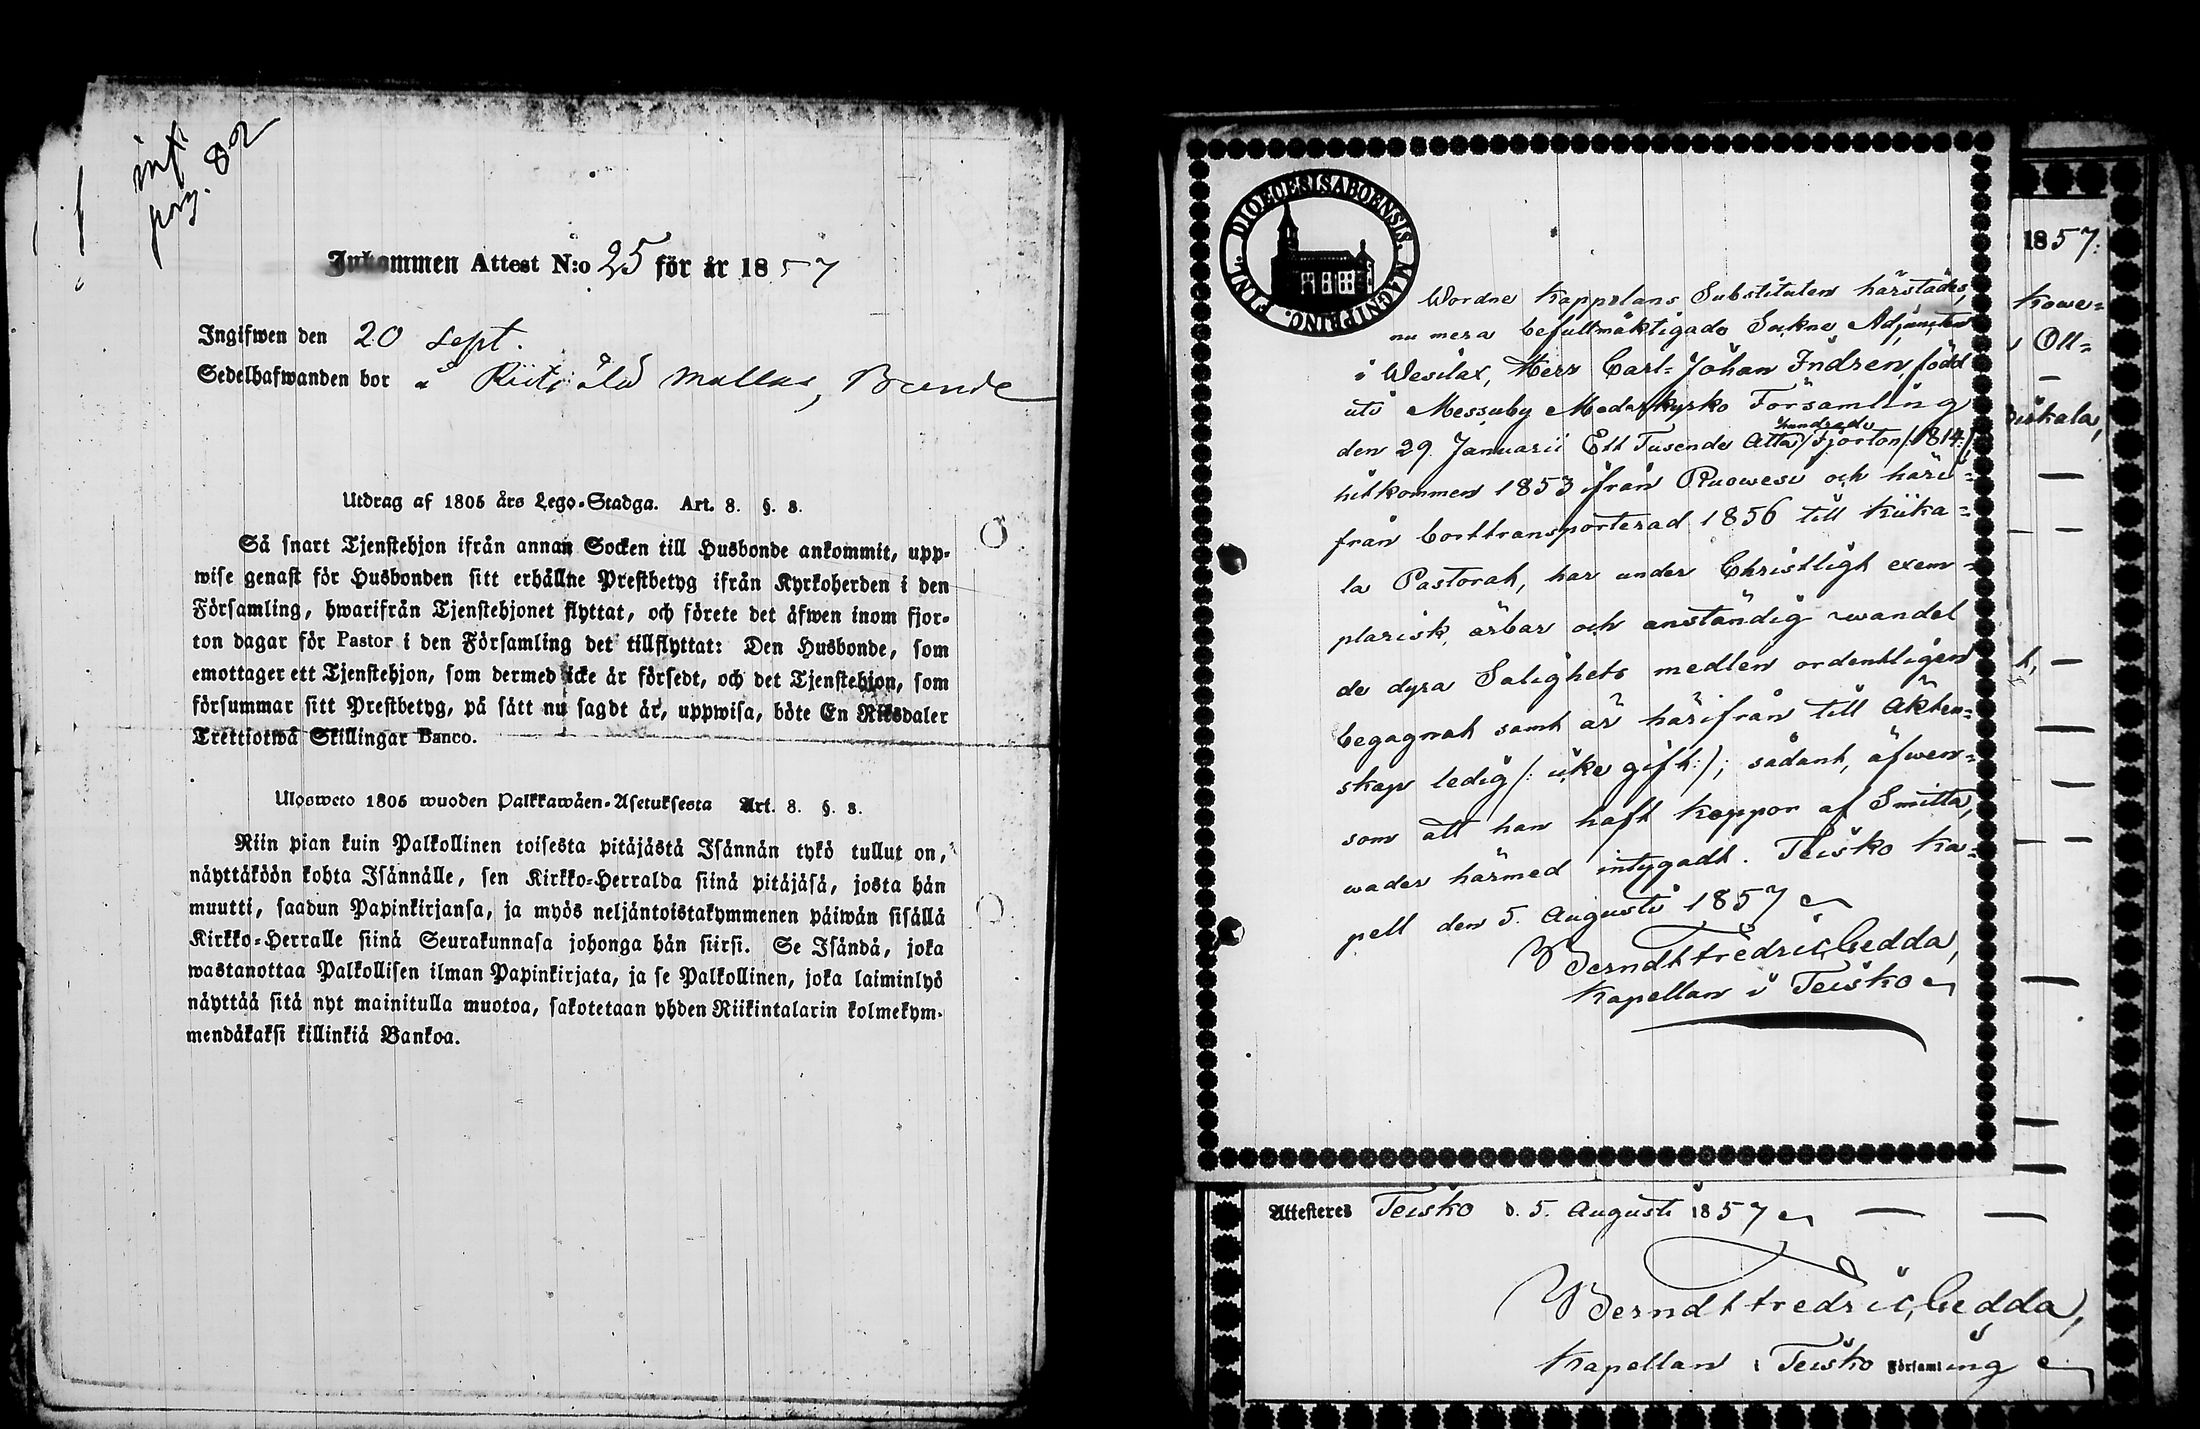 inf.
pag. 82
Inkommen Attest N:o 25 för år 1857
Ingifwen den 20 Sept.
Sedelhafwanden bor å Bonde
Utdrag af 1805 års Lego-Stadga. Art. 8. §. 8.
Så snart Tjenstehjon ifrån annan Socken till Husbonde ankommit, upp-
wise genast för Husbonden sitt erhållne Prestbetyg ifrån Kyrkoherden i den
Församling, hwarifrån Tjenstehjonet flyttat, och förete det äfwen inom fjor-
ton dagar för Pastor i den Församling det tillflyttat: Den Husbonde, som
emottager ett Tjenstehjon, som dermed icke är försedt, och det Tjenstehjon, som
försummar sitt Prestbetyg, på sätt nu sagdt är, uppwisa, böte En Riksdaler
Trettiotwå Skillingar Banco.
Ulosweto 1805 wuoden Palkkawäen-Asetuksesta Art. 8. §. 8.
Niin pian kuin Palkollinen toisesta pitäjästä Isännän tykö tullut on,
näyttäköön kohta Isännälle, sen Kirkko-Herralda siinä pitäjäsä, josta hän
muutti, saadun Papinkirjansa, ja myös neljäntoistakymmenen päiwän sisällä
Kirkko-Herralle siinä Seurakunnasa johonga hän siirsi. Se Isändä, joka
wastanottaa Palkollisen ilman Papinkirjata, ja se Palkollinen, joka laiminlyö
näyttää sitä nyt mainitulla muotoa, sakotetaan yhden Riikintalarin kolmekym-
mendäkaksi killinkiä Bankoa.
DIOECESIS ABOENSIS. MAGNI PRINC. FINL.
Wördne Kappelans Substituten härstädes,
nu mera befullmäktigade Sockne Adjuncten
i Wesilax, Herr Carl-Johan Indren, född
uti Messuby Moderkyrko Församling
den 29 Januarii Ett Tusende Åtta hundrade Fjorton /:1814:/
hitkommen 1853 ifrån Ruowesi och häri-
från borttransporterad 1856 till Kiika-
la Pastorat, har under Christligt exem-
plarisk, ärbar och anständig wandel
de dyra Salighets medlen ordentligen
begagnat samt är härifrån till Äkten-
skap ledig /: icke gift:/; sådant, äfwen-
som att han haft koppor af Smitta,
warder härmed intygadt. Teisko Ka-
pell den 5. Augusti 1857
Berndt Fredric Gedda,
Kapellan i Teisko
1857.
Kowe-
Ott-
iskala,
t,
Attesteres Teisko d. 5. Augusti 1857
Berndt Fredric Gedda,
Kapellan i Teisko Församling